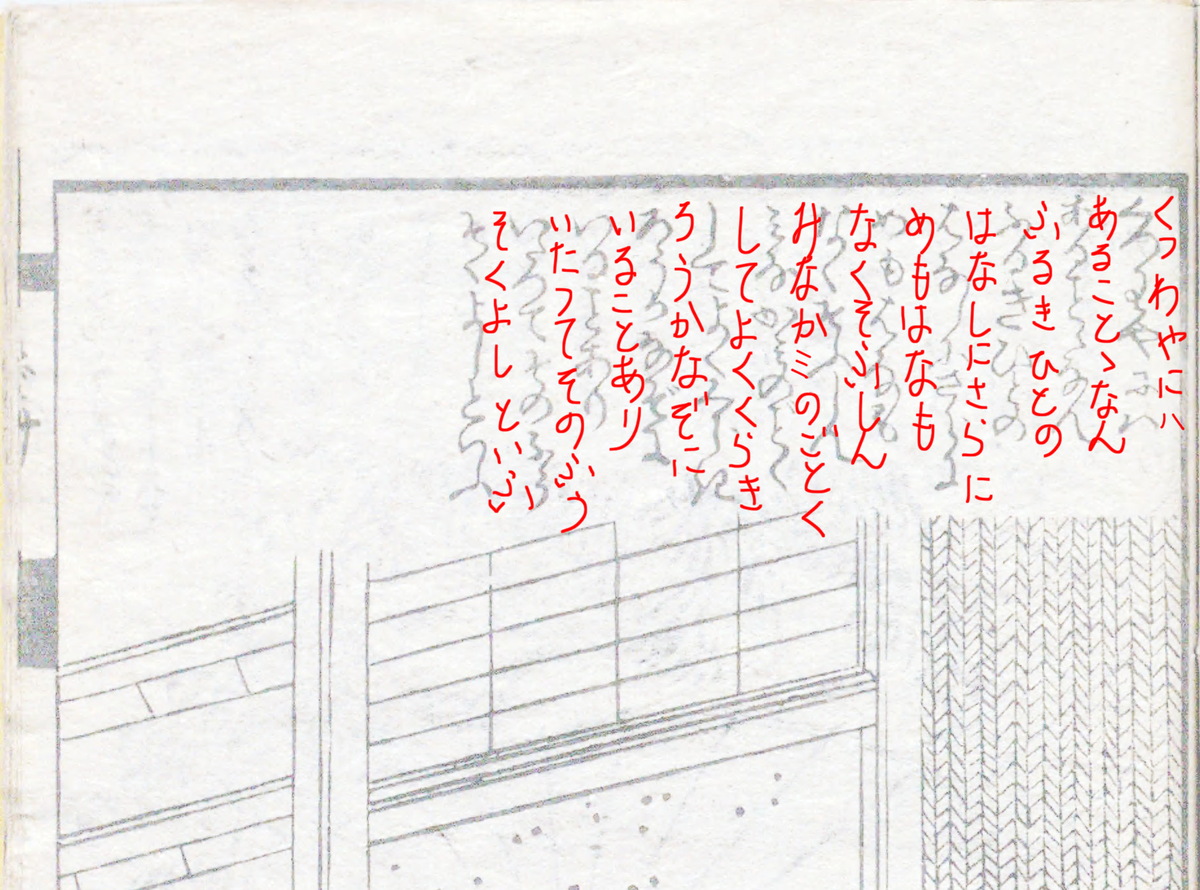 くつわやにハ
あることゝなん
ふるきひとの
はなしにさらに
めもはなも
なくそふしん
みなかミのごとく
してよくくらき
ろうかなぞに
いることあり
いたつてそのふう
そくよしといふ